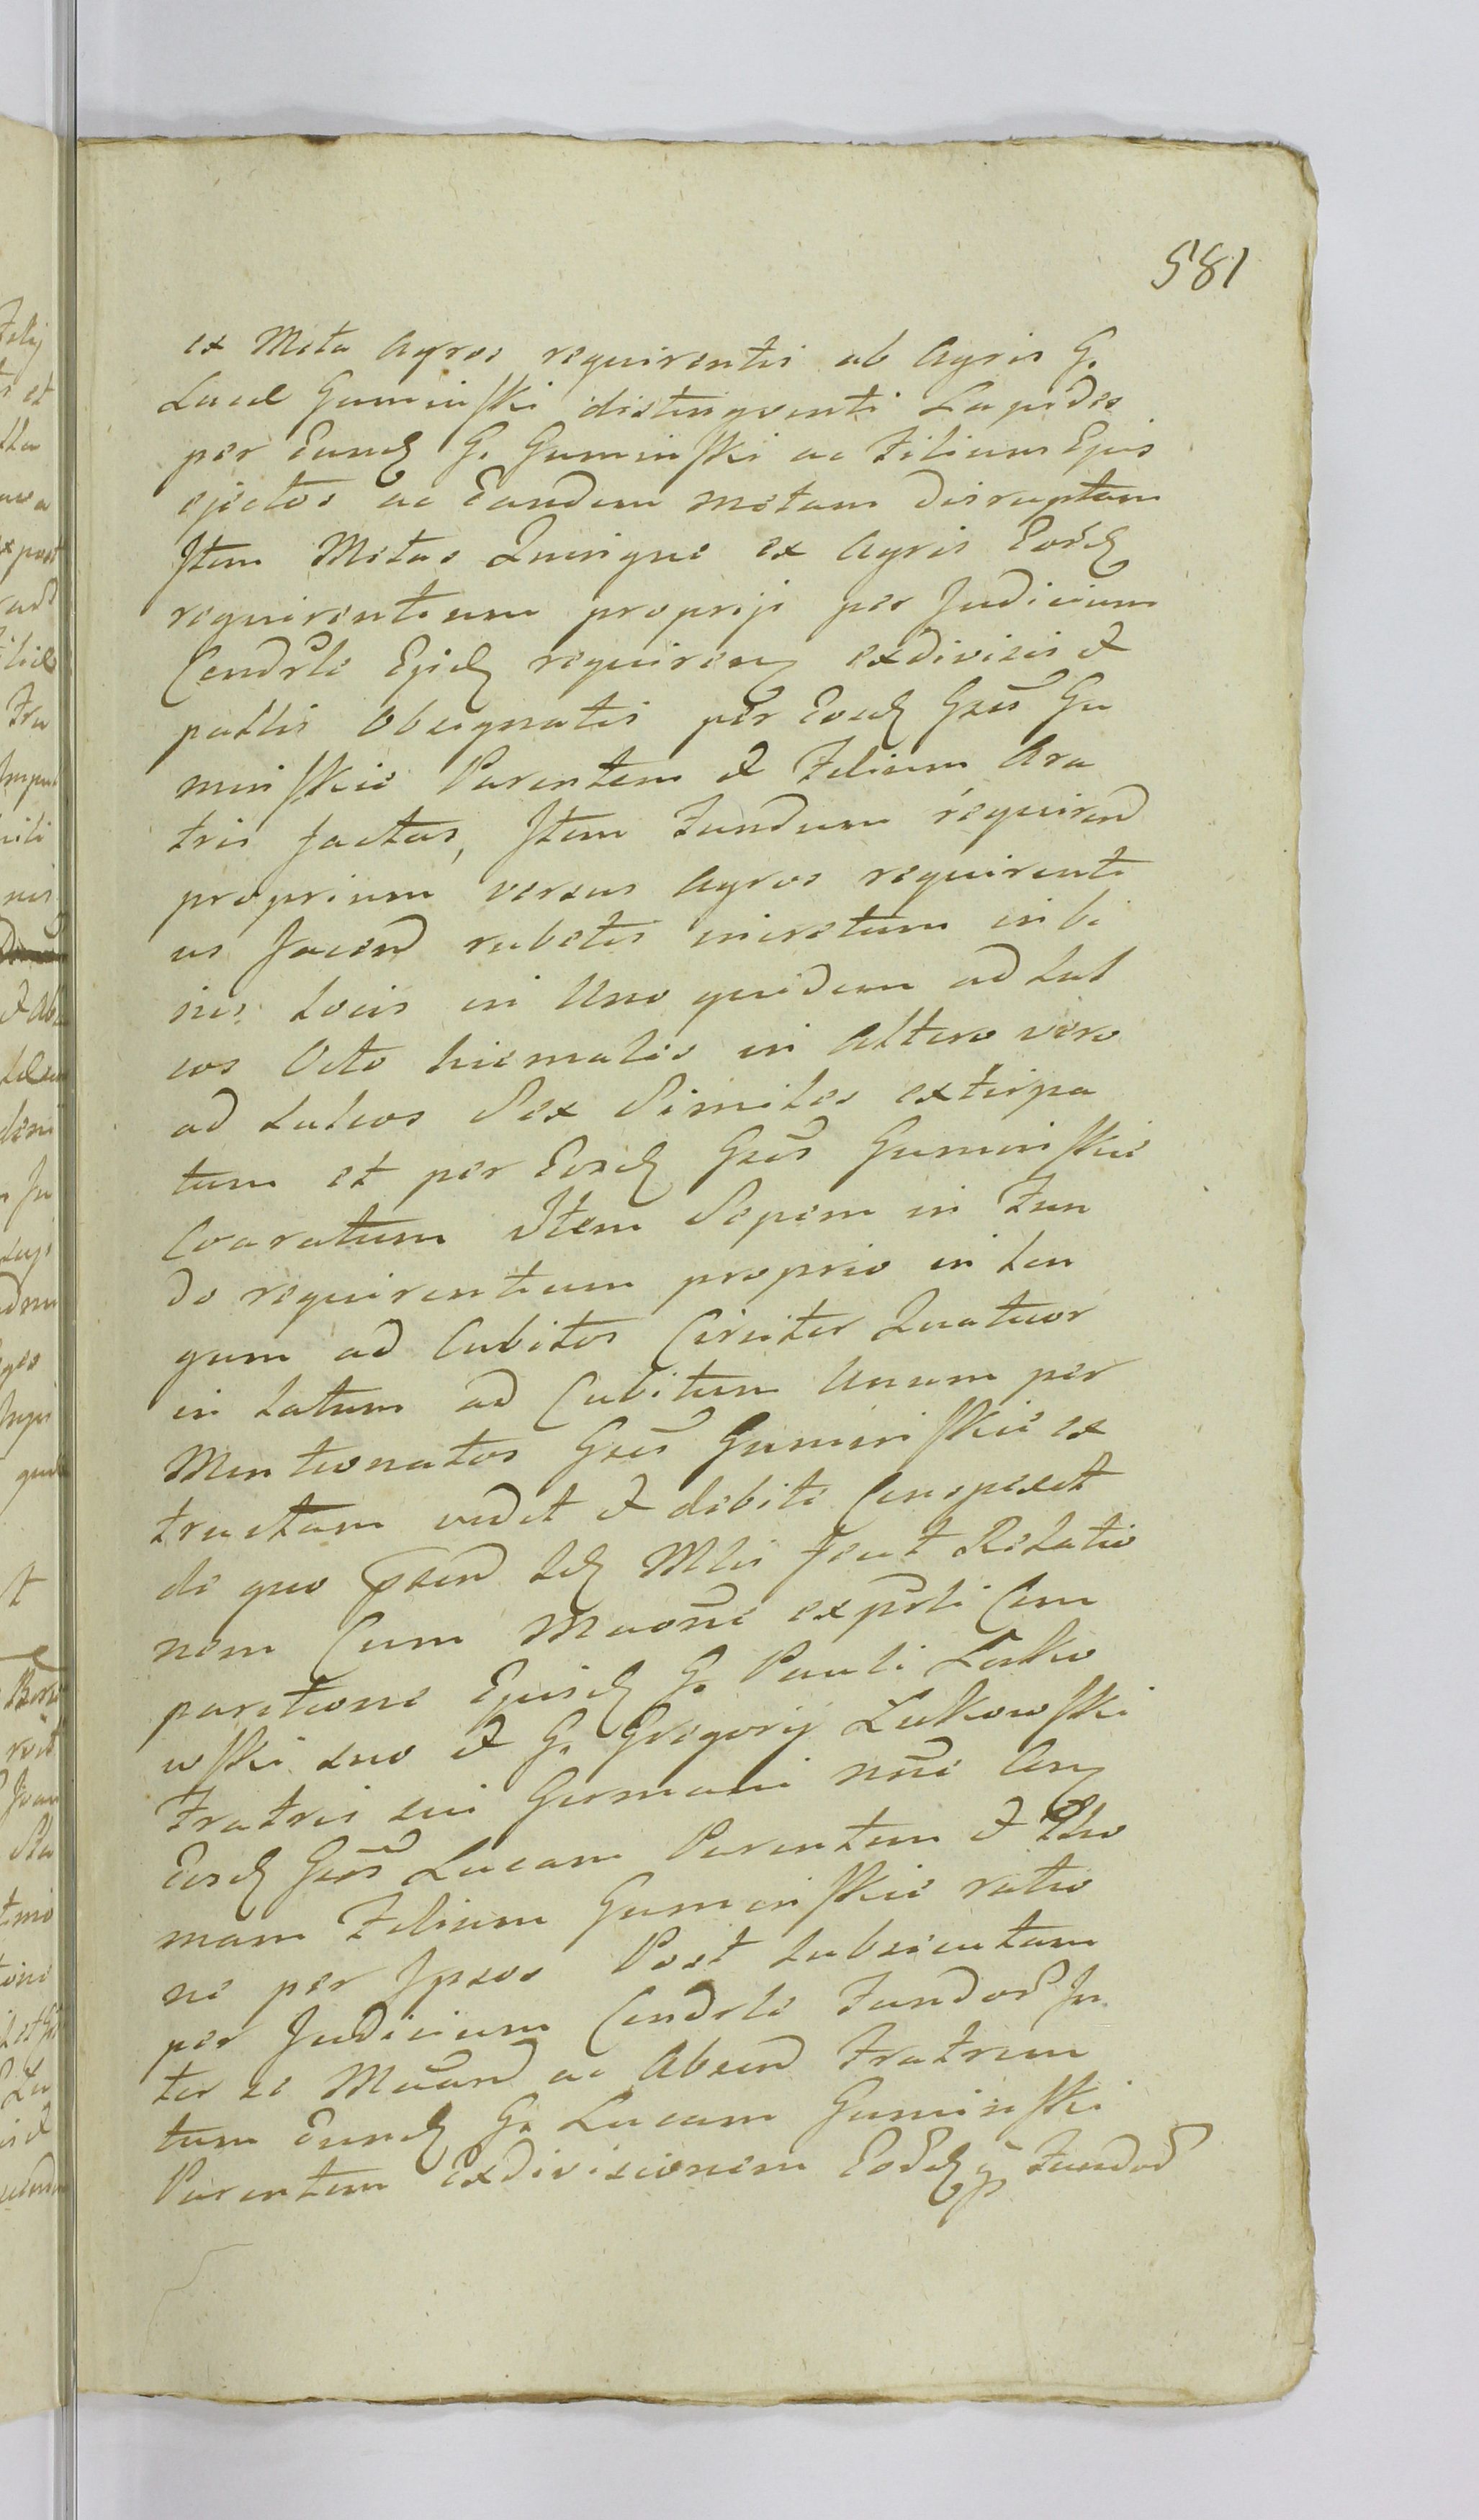 581
ex Meta Agros requirentis ab Agris G.
Lucae Guminski distingventi Lapides
per Eund G. Guminski ac Filium Ejus
ejectos ac Eandem metam disruptam
Item Metas Quinque ex Agris Eord
requirentium proprijs per Judicium
Condrle Ejusd requiren exdivisis et
pallis obsignatis per Eosd Gses Gu
minskie Parentem et Filium Ara
tris factas, Item Fundum requirend
proprium versus Agros requirenti
us Jacend rubetis incretum in bi
nis Locis in Uno quidem ad Sul
cos Octo hiemales in Altero vero
ad Sulcos Sex Similes extirpa
tum et per Eosd Gses Guminskie
Coaratum Item Sepem in Fun
do requirentium proprio in Lon
gum ad Cubitos Circiter Quatuor
in Latum ad Cubitum Unum per
Mentionatos Gses Guminskie ex
tructam vidit et debite Conspexit
de quo psend Sd Mlis fecit Relatio
nem Cum Maone exprli Com
paritione Ejusd G. Pauli Lasko
wski suo et G. Gregorij Laskowski
Fratris sui Germani nne Con
Eosd Gses Lucam Parentem et Tho
mam Filium Guminskie ratio
ne per Ipsos Post subsecutam
per Judicium Condrle Fundor In
ter se Maand ac Absend Fratrem
tum Eund G. Lucam Guminski
Parentem Exdivisionem Eord Fundor